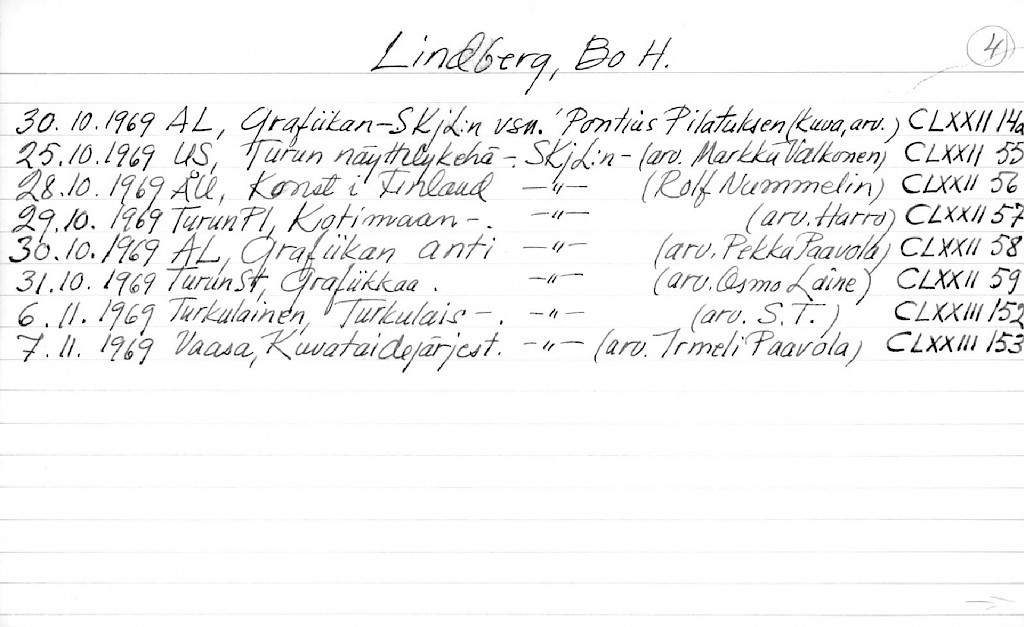 Lindberg, Bo H.
4
30.10.1969 AL, Grafiikan-SKjL:n vsn. 'Pontius Pilatuksen (kuva, arv.) CLXXII 14a
25.10.1969 US, Turun näyttelykehä - SKjL:n - (arv. Markku Valkonen) CLXXII 55
28.10.1969 ÅU, Konst i Finland —"— (Rolf Nummelin) CLXXII 56
29.10.1969 TurunPl, Kotimaan -. —"— (arv. Harro) CLXXII 57
30.10.1969 AL, Grafiikan anti —"— (arv. Pekka Paavola) CLXXII 58
31.10.1969 TurunSt, Grafiikkaa. —"— (arv. Osmo Laine) CLXXII 59
6.11.1969 Turkulainen, Turkulais-. —"— (arv. S.T.) CLXXIII 152
7.11.1969 Vaasa, Kuvataidejärjest. —"— (arv. Irmeli Paavola) CLXXIII 153